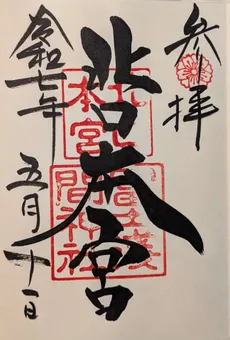 参拝
北口本宮
令和七年
五月十一日
本宮
間神社